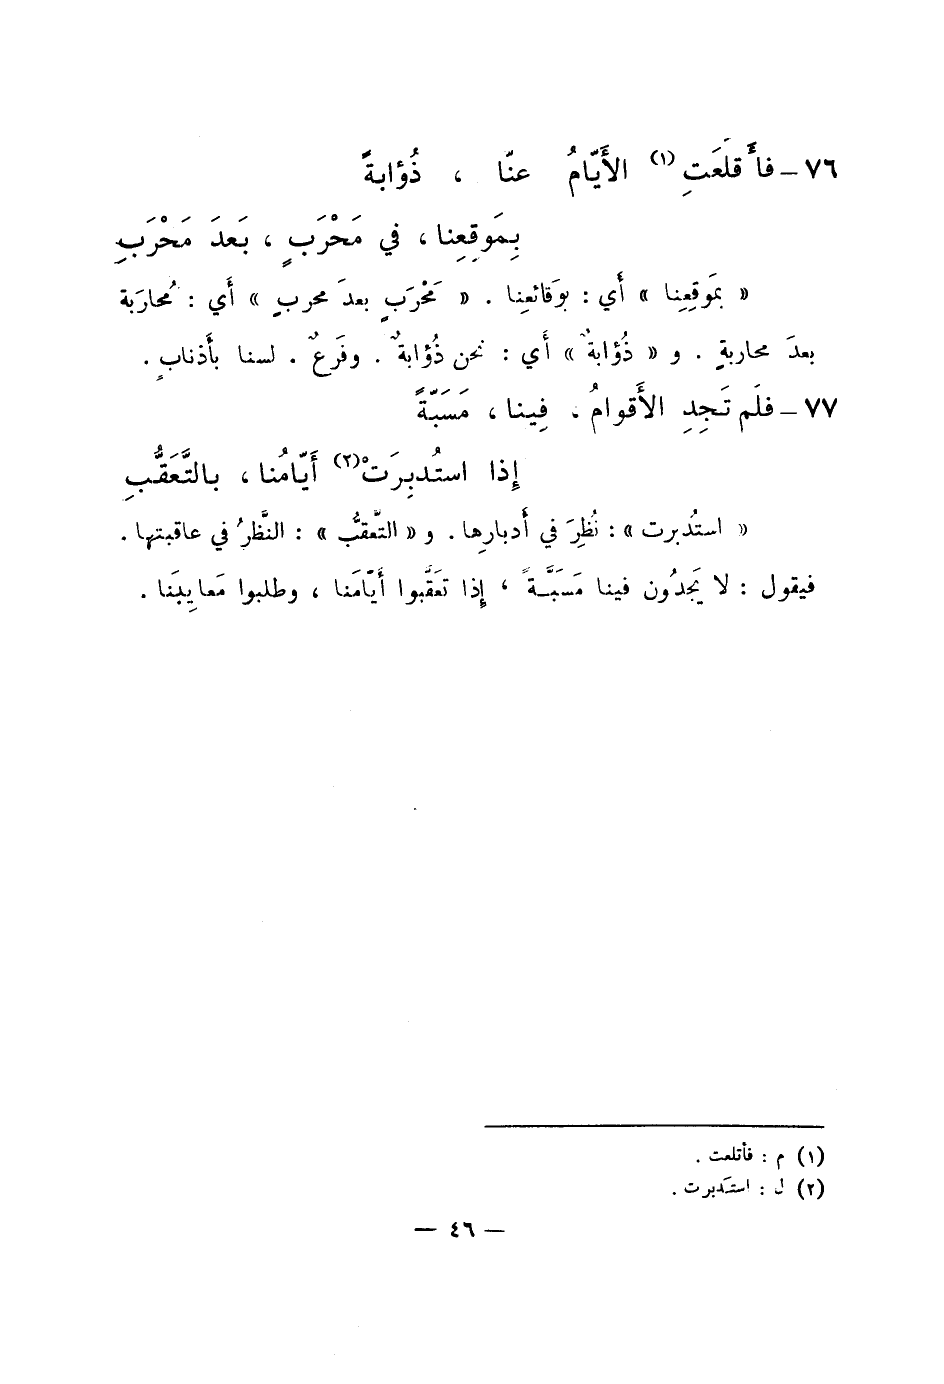 ٧٦ – فأَقلَعَتِ (١) الأَيّامُ عنّا ، ذُؤابةً
بِمَوقِعِنا ، في مَحْرَبٍ ، بَعدَ مَحْرَبِ
« بمَوقِعِنا » أَي : بوَقائعِنا . « مَحْرَبٍ بعدَ محربٍ » أَي : مُحارَبة
بعدَ محاربةٍ . و « ذُؤابةٌ » أَي : نحن ذُؤابةٌ . وفَرعٌ . لسنا بأَذنابٍ .
٧٧ – فلَم تَجِدِ الأَقوامُ ، فِينا ، مَسَبّةً
إِذا استُدبِرَتْ (٢) أَيّامُنا ، بالتَّعَقُّبِ
« استُدبرت » : نُظِرَ في أَدبارِها . و « التَّعقُّب » : النَّظرُ في عاقبتها .
فيقول : لا يَجدُون فينا مَسَبَّةً ، إِذا تعَقَّبوا أَيّامَنا ، وطلبوا مَعايِبَنا .
(١) م : فأتلعت .
(٢) ل : استَدبرت .
— ٤٦ —